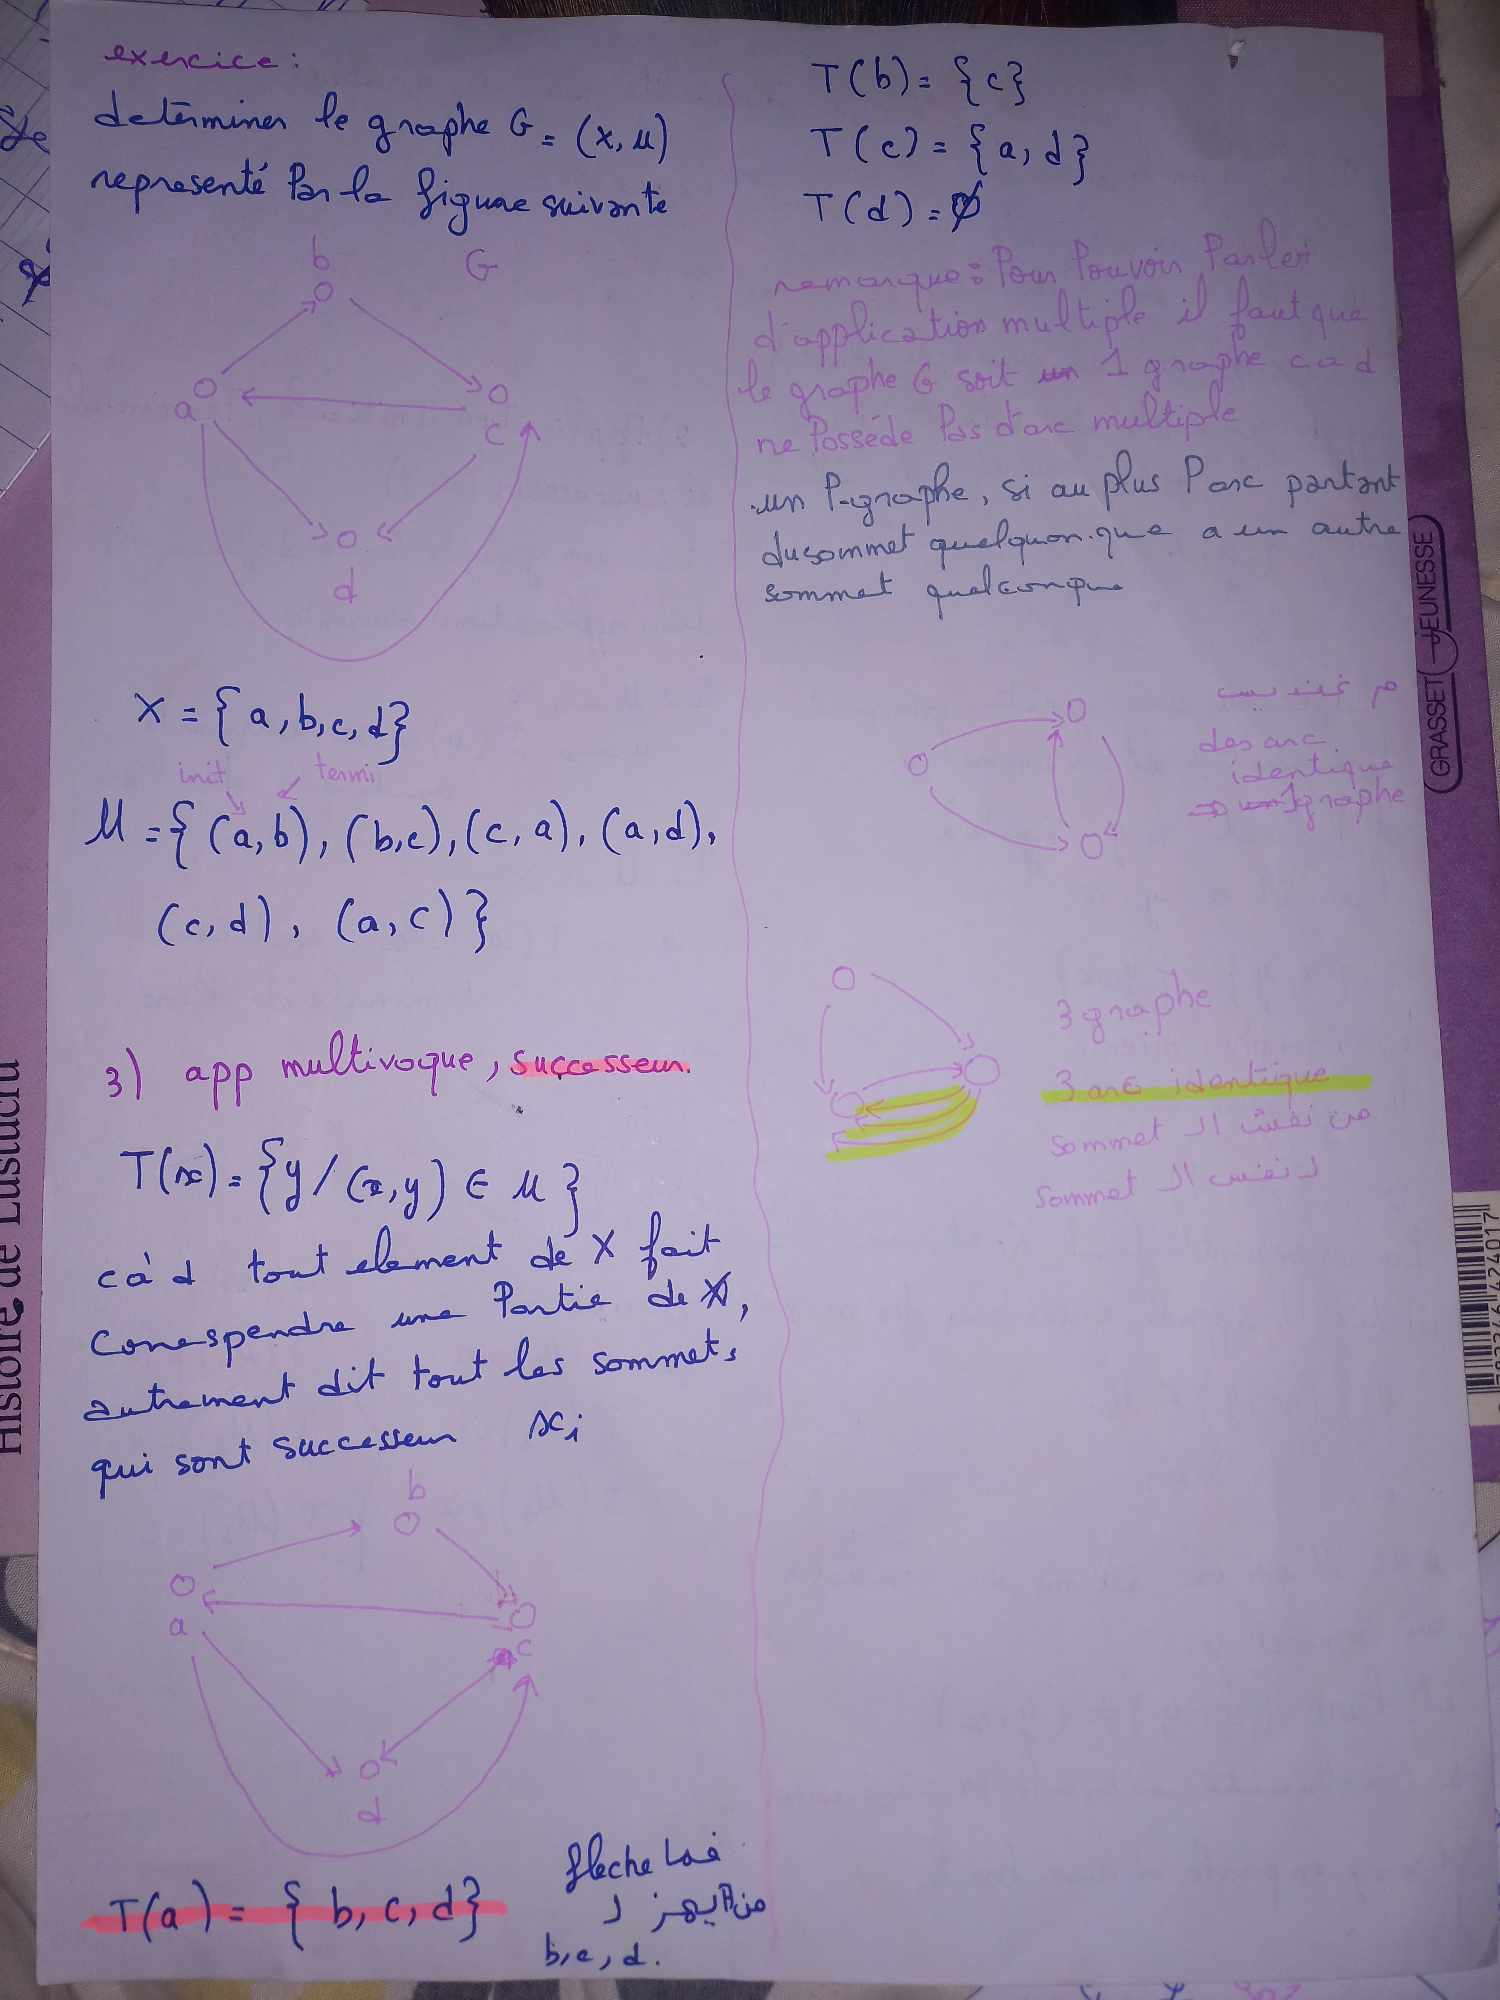 exercice :
determiner le graphe G = (X, U)
representé Par la figure suivante
b
G
a
c
d
X = { a, b, c, d}
init termi
U = { (a, b), (b, c), (c, a), (a, d),
(c, d), (a, c) }
3) app multivoque, successeur.
T(x) = { y / (x, y) ∈ U }
cà d tout element de X fait
correspendre une Partie de X,
autrement dit tout les sommets
qui sont successeur xi
b
a
c
d
T(a) = { b, c, d}
fleche
من
b, c, d.
T(b) = {c}
T(c) = {a, d}
T(d) = Ø
remarque : Pour Pouvoir Parler
d'application multiple il faut que
le graphe G soit 1 graphe c a d
ne Posséde Pas d'arc multiple
un P-graphe, si au plus P arc partant
du sommet quelquon que a un autre
sommet quelconque
des arc
identique
⇒ 1 graphe
3 graphe
3 arc identique
من نفس ال sommet
ل نفس ال sommet
GRASSET JEUNESSE
Histoire de Lustucru